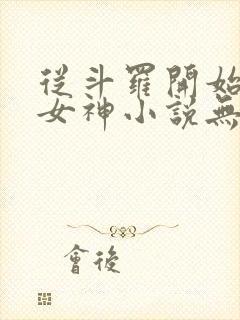 從斗羅開始
女神小說無
會後